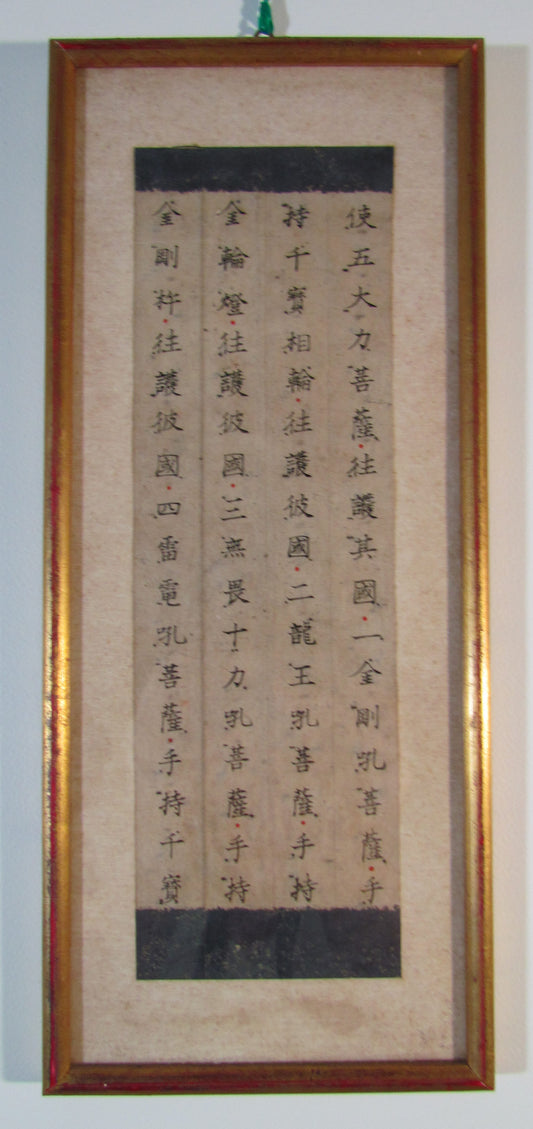 使五大力菩薩·往護其國·一金剛吼菩薩·手
持千寶相輪·往護彼國·二龍王吼菩薩·手持
金輪燈·往護彼國·三無畏十力吼菩薩·手持
金剛杵·往護彼國·四雷電吼菩薩·手持千寶